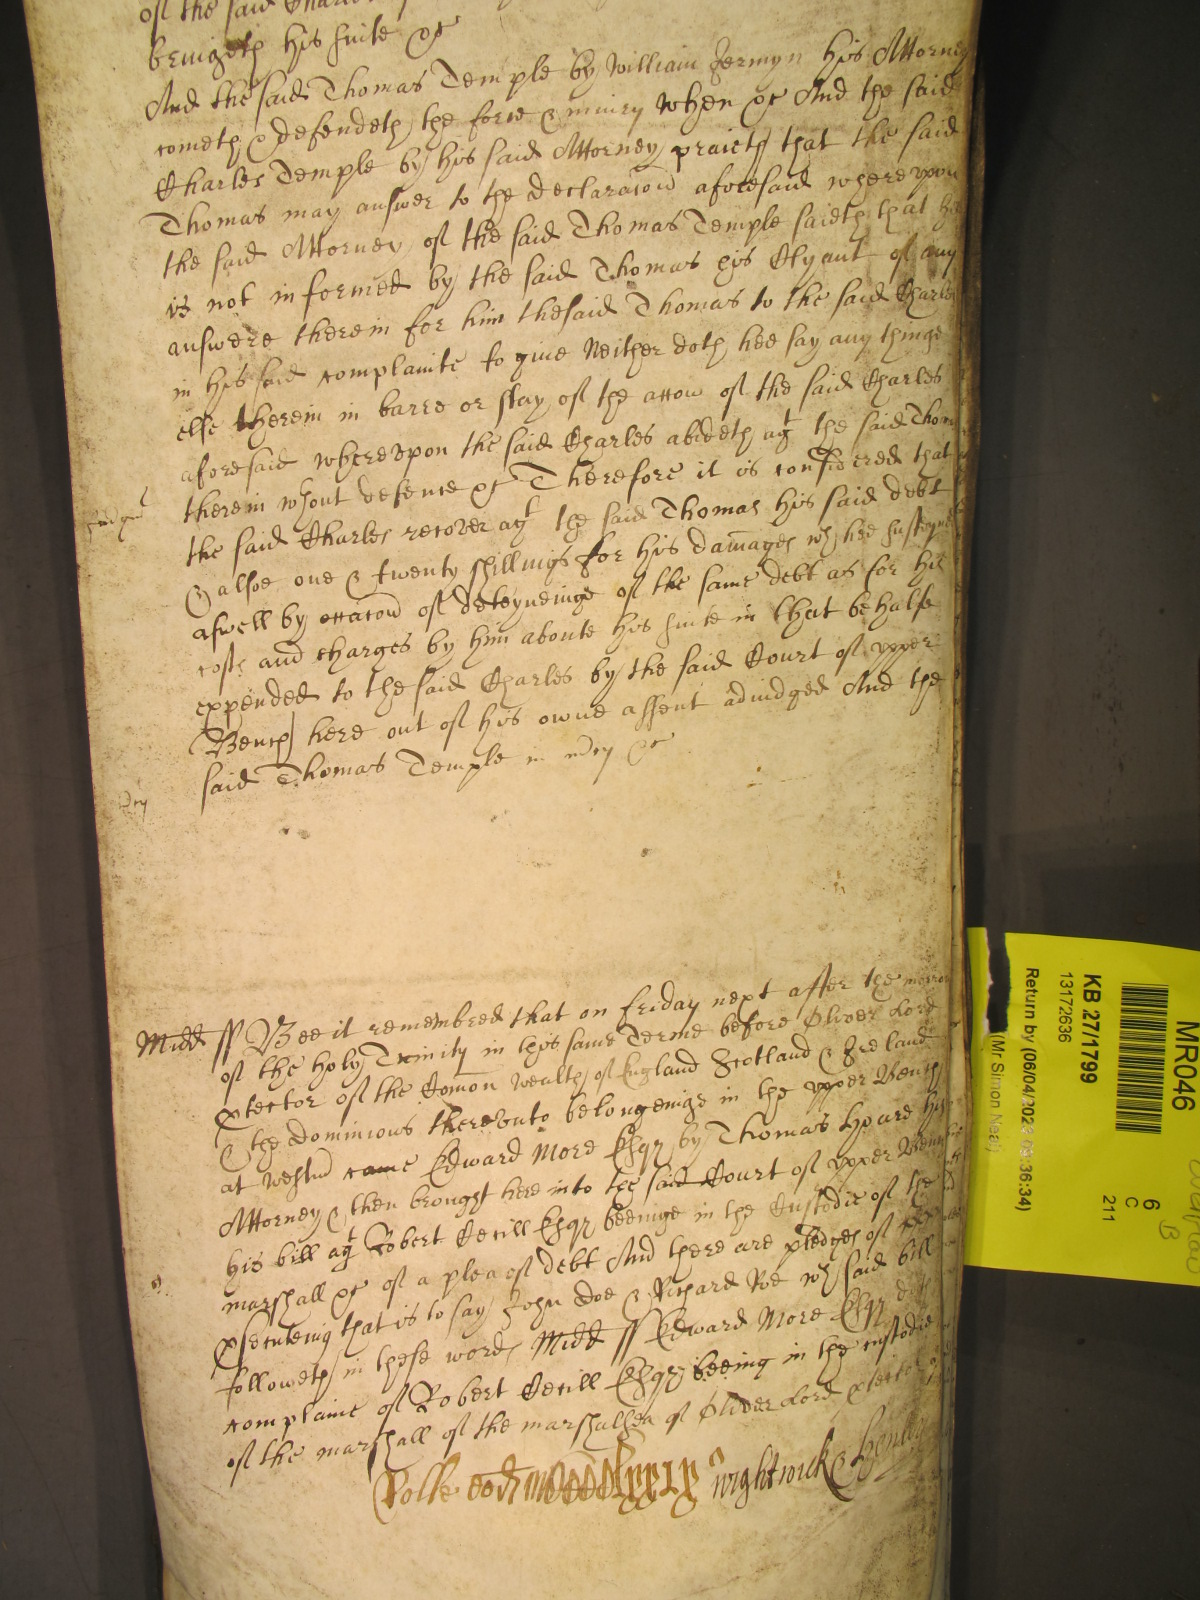 of the said Charles
bringeth his suite &c
And the said Thomas Temple by William Jermyn his Attorney
cometh & defendeth the force & iniury when &c And the said
Charles Temple by his said Attorney praieth that the said
Thomas may answer to the declaracon aforesaid whereupon
the said Attorney of the said Thomas Temple saieth that hee
is not informed by the said Thomas his Clyant of any
answere therein for him thesaid Thomas to the said Charles
in his said complainte to give Neither doth hee say any thinge
else therein in barre or stay of the accon of the said Charles
aforesaid whereupon the said Charles abideth agt the said Thom
Judgmt
therein wthout defence &c Therefore it is considered that
the said Charles recover agt the said Thomas his said debt
& alsoe one & twenty shillings for his damages wch hee susteyned
aswell by occacon of deteyneinge of the same debt as for his
costs and charges by him aboute his suite in that behalfe
expended to the said Charles by the said Court of upper
Bench here out of his owne assent adiudged And the
said Thomas Temple in mcy &c
mcy
Midd ss Bee it remembred that on Friday next after the morrow
of the holy Trinity in this same Terme before Oliver Lord
ptector of the Comon wealth of England Scotland & Ireland
& the dominions thereunto belongeinge in the upper Bench
at Westmr came Edward More Esqr by Thomas Hoare his
Attorney & then brought here into the said Court of upper Bench
his bill agt Robert Cecill Esqr beeinge in the Custodie of the
marshall &c of a plea of debt And there are pledges of
psecuteing that is to say John Doe & Richard Roe wch said bill
followeth in these words Midd ss Edward More Esqr doth
complaine of Robert Cecill Esqr beeing in the custodie
of the marshall of the marshalsea of Oliver Lord ptector
Rolle wightwick & Henley
MR046
KB 27/1799
13172636
Return by (06/04/2023 09:36:34)
(Mr Simon Neal)
6
C
211